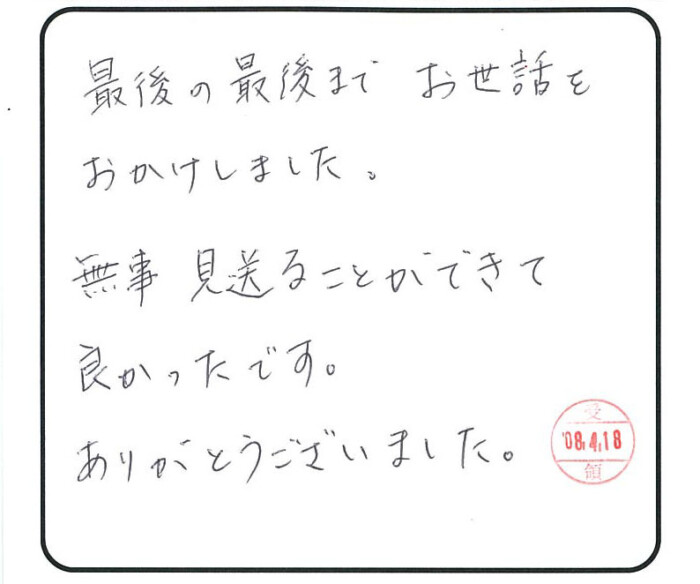 最後の最後まで お世話を
おかけしました。
無事 見送ることができて
良かったです。
ありがとうございました。
受
'08.4.18
領